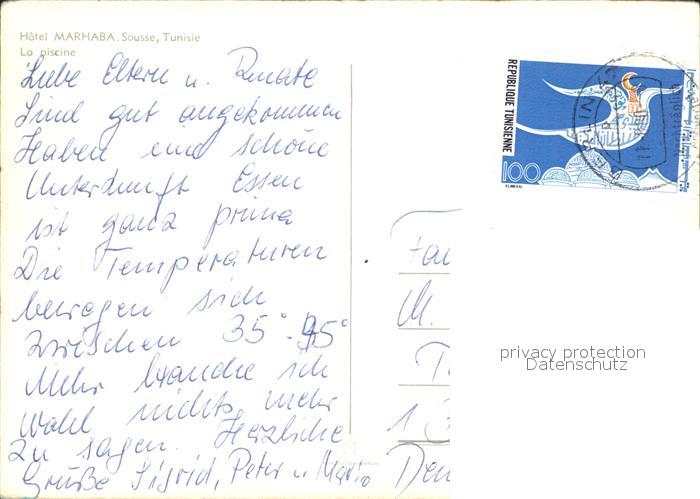 Hôtel MARHABA. Sousse, Tunisie
La piscine
Liebe Eltern u. Renate
Sind gut angekommen
Haben eine schöne
Unterkunft Essen
ist ganz prima
Die Temperaturen
bewegen sich
zwischen 35°-45°
Mehr brauche ich
wohl nichts mehr
zu sagen. Herzliche
Grüße Sigrid, Peter u. Mario
REPUBLIQUE TUNISIENNE
100
Fam
M.
1
Den
privacy protection
Datenschutz